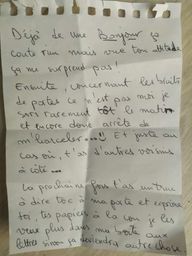 Déjà de une Bonjour ça
coute rien mais vue ton attitude
ça me surprend pas!
Ensuite, concernant les bruits
de portes ce n'est pas moi je
sors rarement tôt le matin
et encore donc arrête de
m'harceler...! Et juste au
cas où, t'as d'autres voisins
à côté...
La prochaine fois t'as un truc
à dire toc à ma porte et exprime
toi, tes papiers à la con je les
veux plus dans ma boite aux
lettres sinon ça deviendra autre chose